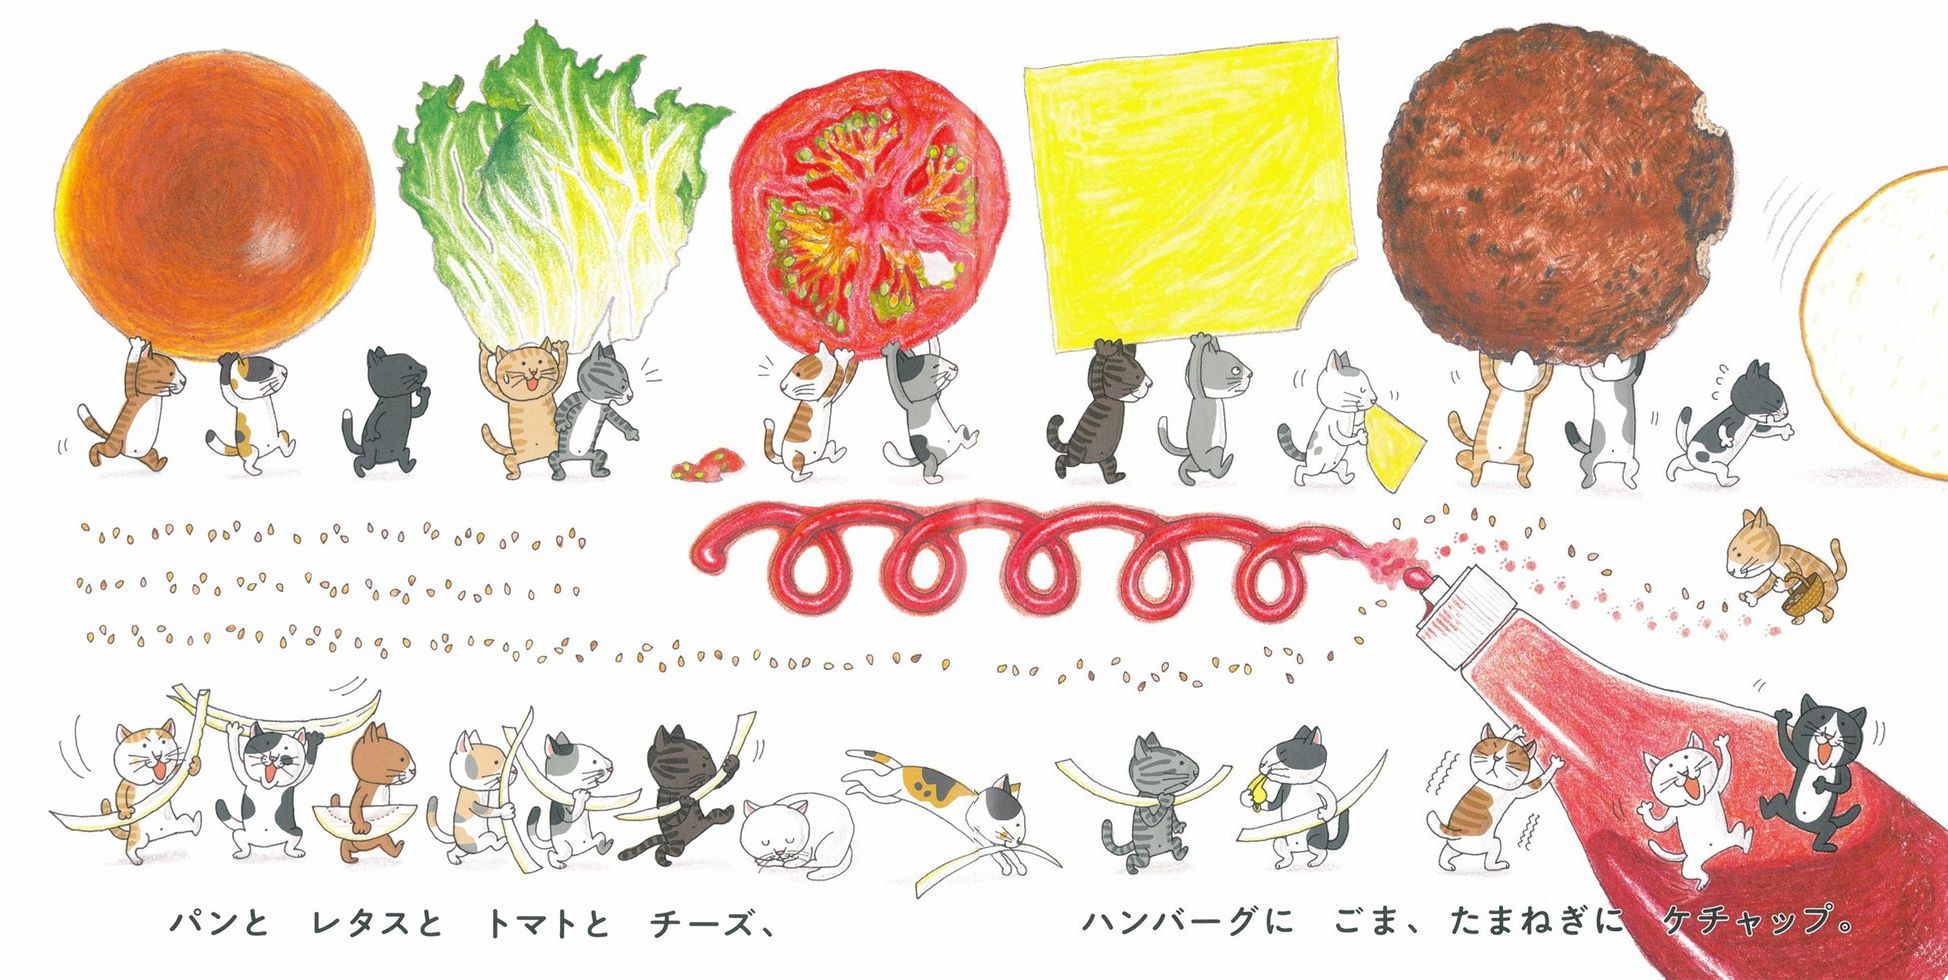 パンと　レタスと　トマトと　チーズ、
ハンバーグに　ごま、たまねぎに　ケチャップ。